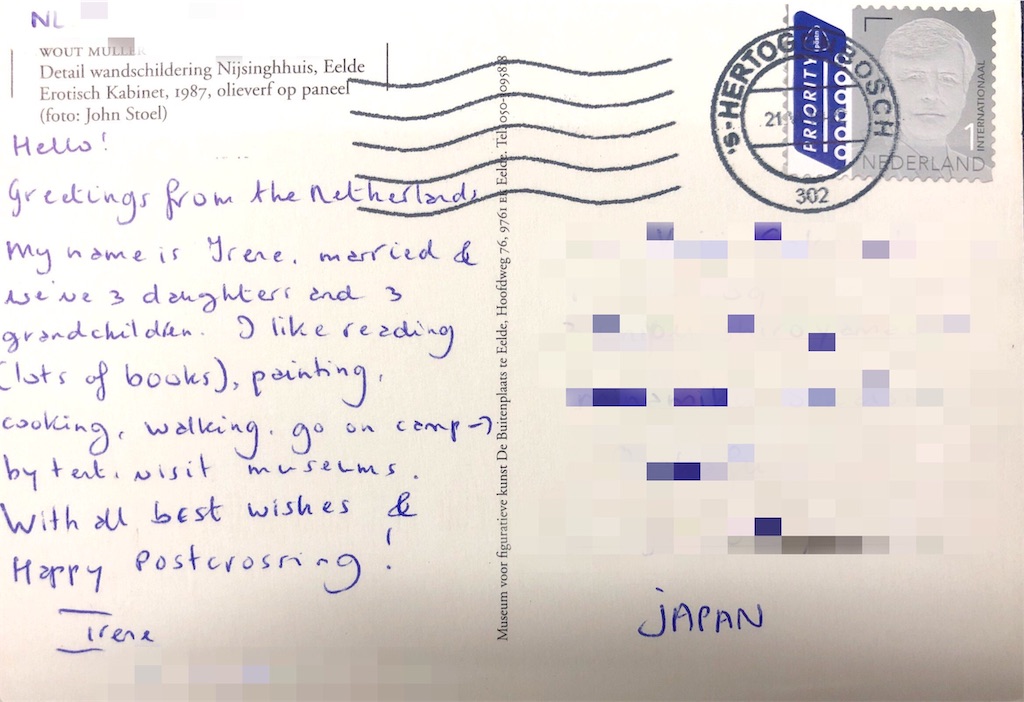 NL
WOUT MULLER
Detail wandschildering Nijsinghhuis, Eelde
Erotisch Kabinet, 1987, olieverf op paneel
(foto: John Stoel)
Hello!
Greetings from the Netherlands
My name is Irene, married &
we've 3 daughters and 3
grandchildren. I like reading
(lots of books), painting,
cooking, walking, go on camp→
by tent, visit museums.
With all best wishes &
Happy Postcrossing!
Irene
Museum voor figuratieve kunst De Buitenplaats te Eelde. Hoofdweg 76, 9761 EK Eelde. Tel. 050-3095818
'S-HERTOGENBOSCH
21
302
PRIORITY
1
INTERNATIONAAL
NEDERLAND
JAPAN